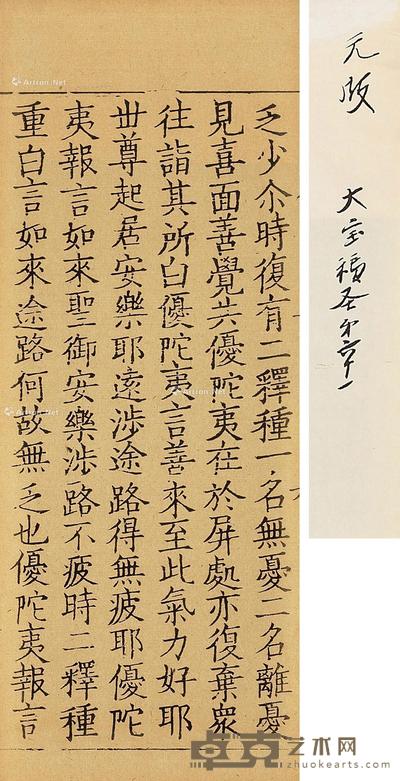 元版
大宝積
乏少尒時復有二釋種一名無憂二名離憂
見喜面善覺共優陀夷在於屏處亦復棄衆
往詣其所白優陀夷言善來至此氣力好耶
世尊起居安樂耶遠涉途路得無疲耶優陀
夷報言如來聖御安樂涉路不疲時二釋種
重白言如來途路何故無乏也優陀夷報言
Artron.Net
Artron.Net
Artron.Net
卓克艺术网
zhuokearts.com